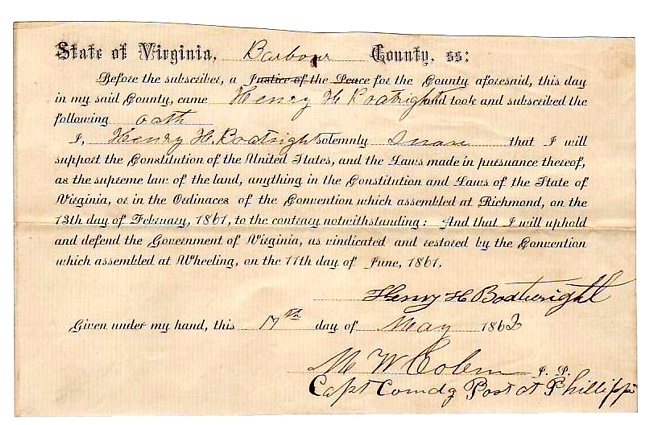 State of Virginia, Barbour County, ss:
Before the subscriber, a Justice of the Peace for the County aforesaid, this day
in my said County, came Henry H Boatright and took and subscribed the
following oath
I, Henry H. Boatright solemnly swear that I will
support the Constitution of the United States, and the Laws made in pursuance thereof,
as the supreme law of the land, anything in the Constitution and Laws of the State of
Virginia, or in the Ordinances of the Convention which assembled at Richmond, on the
13th day of February, 1861, to the contrary notwithstanding: And that I will uphold
and defend the Government of Virginia, as vindicated and restored by the Convention
which assembled at Wheeling, on the 11th day of June, 1861.
Henry H Boatwright
Given under my hand, this 17th day of May 1862
M W J. P.
Capt Comdg Post at Phillippi